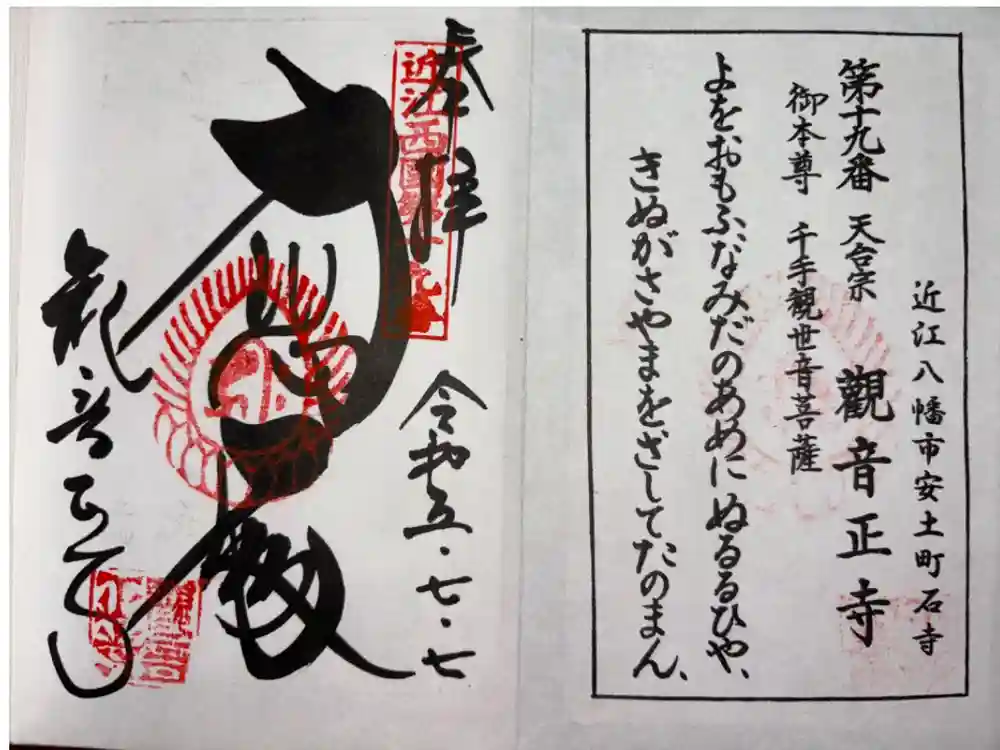 近江八幡市安土町石寺
第十九番 天台宗 觀音正寺
御本尊 千手觀世音菩薩
よをおもふなみだのあめにぬるるひや、
きぬがさやまをさしてたのまん、
奉拝
近江西國第十九番
令和五・七・七
觀音正寺